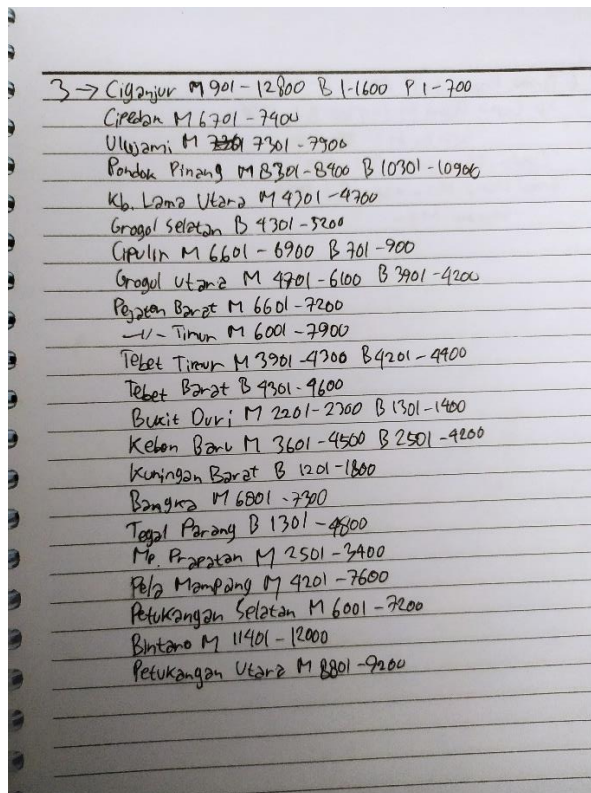 3 → Ciganjur M 901 - 12800 B 1-1600 P 1-700
Cipedak M 6701 - 7400
Ulujami M 7301 - 7900
Pondok Pinang M 8301 - 8400 B 10301 - 10900
Kb. Lama Utara M 4301 - 4700
Grogol Selatan B 4301 - 5200
Cipulir M 6601 - 6900 B 701 - 900
Grogol Utara M 4701 - 6100 B 3901 - 4200
Pejaten Barat M 6601 - 7200
-〃- Timur M 6001 - 7900
Tebet Timur M 3901 - 4300 B 4201 - 4400
Tebet Barat B 4301 - 4600
Bukit Duri M 2201 - 2300 B 1301 - 1400
Kebon Baru M 3601 - 4500 B 2501 - 4200
Kuningan Barat B 1201 - 1800
Bangka M 6801 - 7300
Tegal Parang B 1301 - 4800
Mp. Prapatan M 2501 - 3400
Pela Mampang M 4201 - 7600
Petukangan Selatan M 6001 - 7200
Bintaro M 11401 - 12000
Petukangan Utara M 8801 - 9200